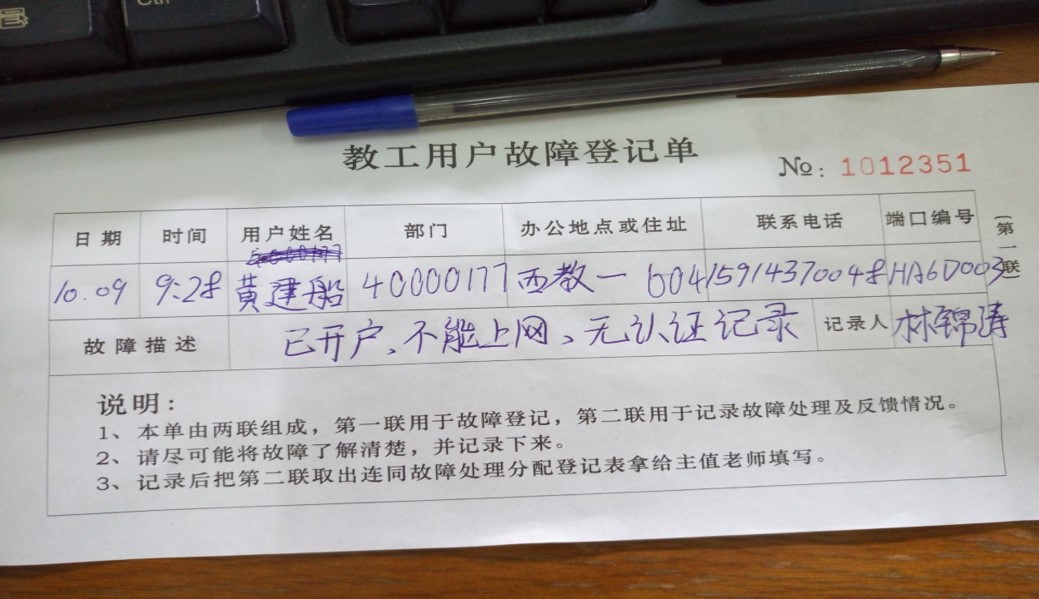 Ctrl
教工用户故障登记单
№: 1012351
日期 时间 用户姓名 部门 办公地点或住址 联系电话 端口编号
10.09 9:28 黄建船 40000177 西教一 604 15914370048 HA6D003
故障描述 已开户、不能上网、无认证记录 记录人 林锦涛
(第一联)
说明:
1、本单由两联组成，第一联用于故障登记，第二联用于记录故障处理及反馈情况。
2、请尽可能将故障了解清楚，并记录下来。
3、记录后把第二联取出连同故障处理分配登记表拿给主值老师填写。